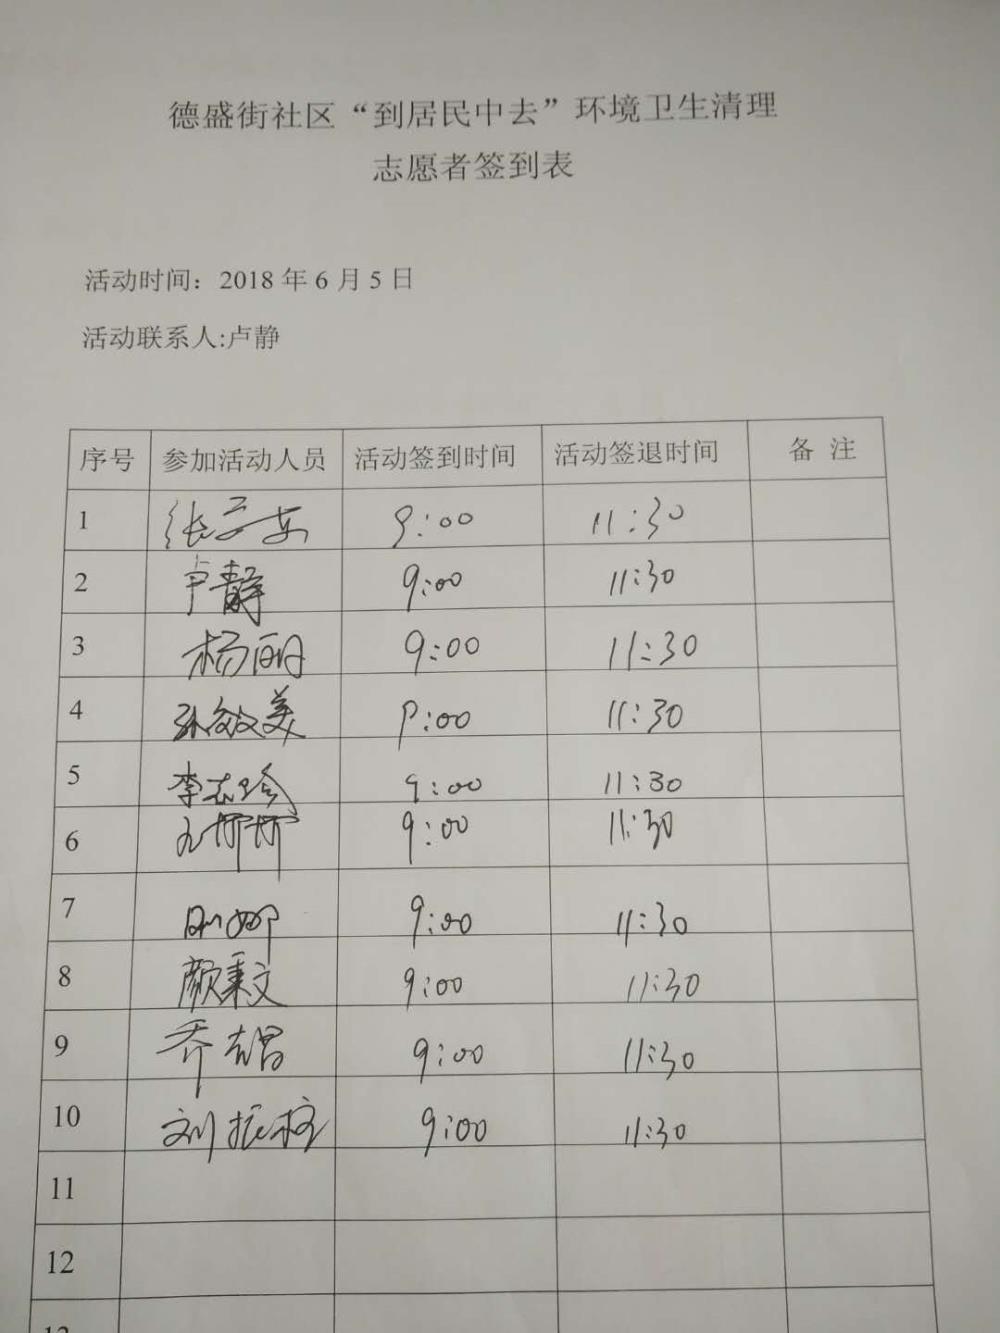 德盛街社区“到居民中去”环境卫生清理
志愿者签到表
活动时间：2018年6月5日
活动联系人:卢静
序号 参加活动人员 活动签到时间 活动签退时间 备 注
1 9:00 11:30
2 卢静 9:00 11:30
3 杨丽 9:00 11:30
4 孙敏美 9:00 11:30
5 李志珍 9:00 11:30
6 9:00 11:30
7 9:00 11:30
8 颜秉文 9:00 11:30
9 乔 9:00 11:30
10 刘振柱 9:00 11:30
11
12